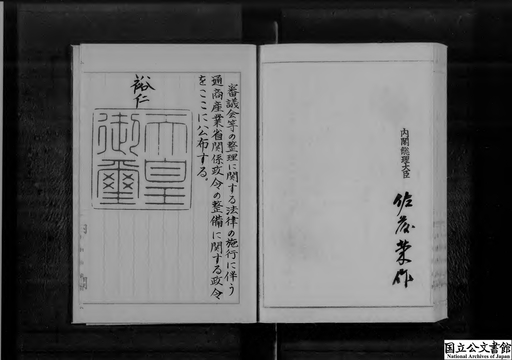 審議会等の整理に関する法律の施行に伴う
通商産業省関係政令の整備に関する政令
をここに公布する。
裕仁
天皇
御璽
内閣総理大臣
佐藤栄作
国立公文書館
National Archives of Japan